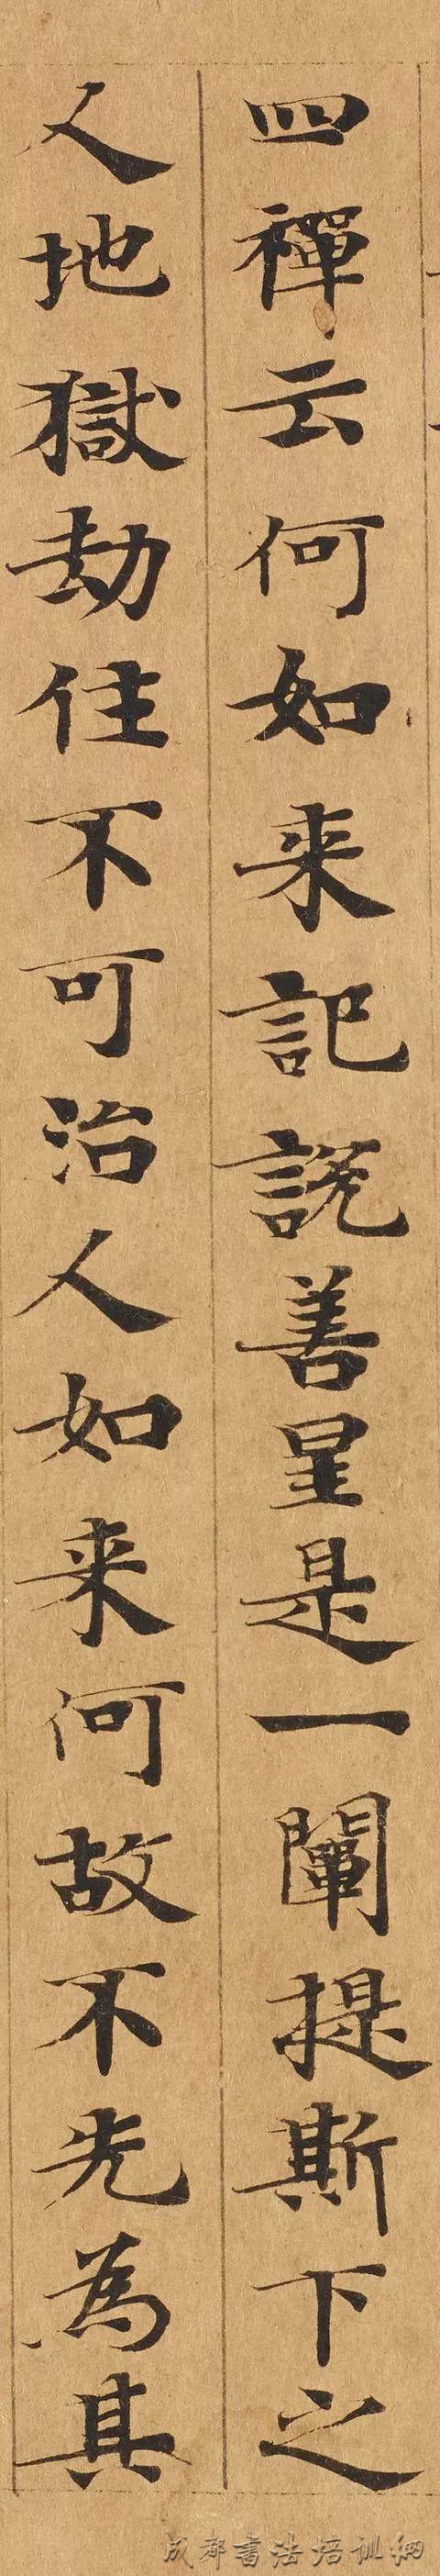 四禪云何如来記說善星是一闡提斯下之
人地獄劫住不可治人如来何故不先為其
成都書法培训網